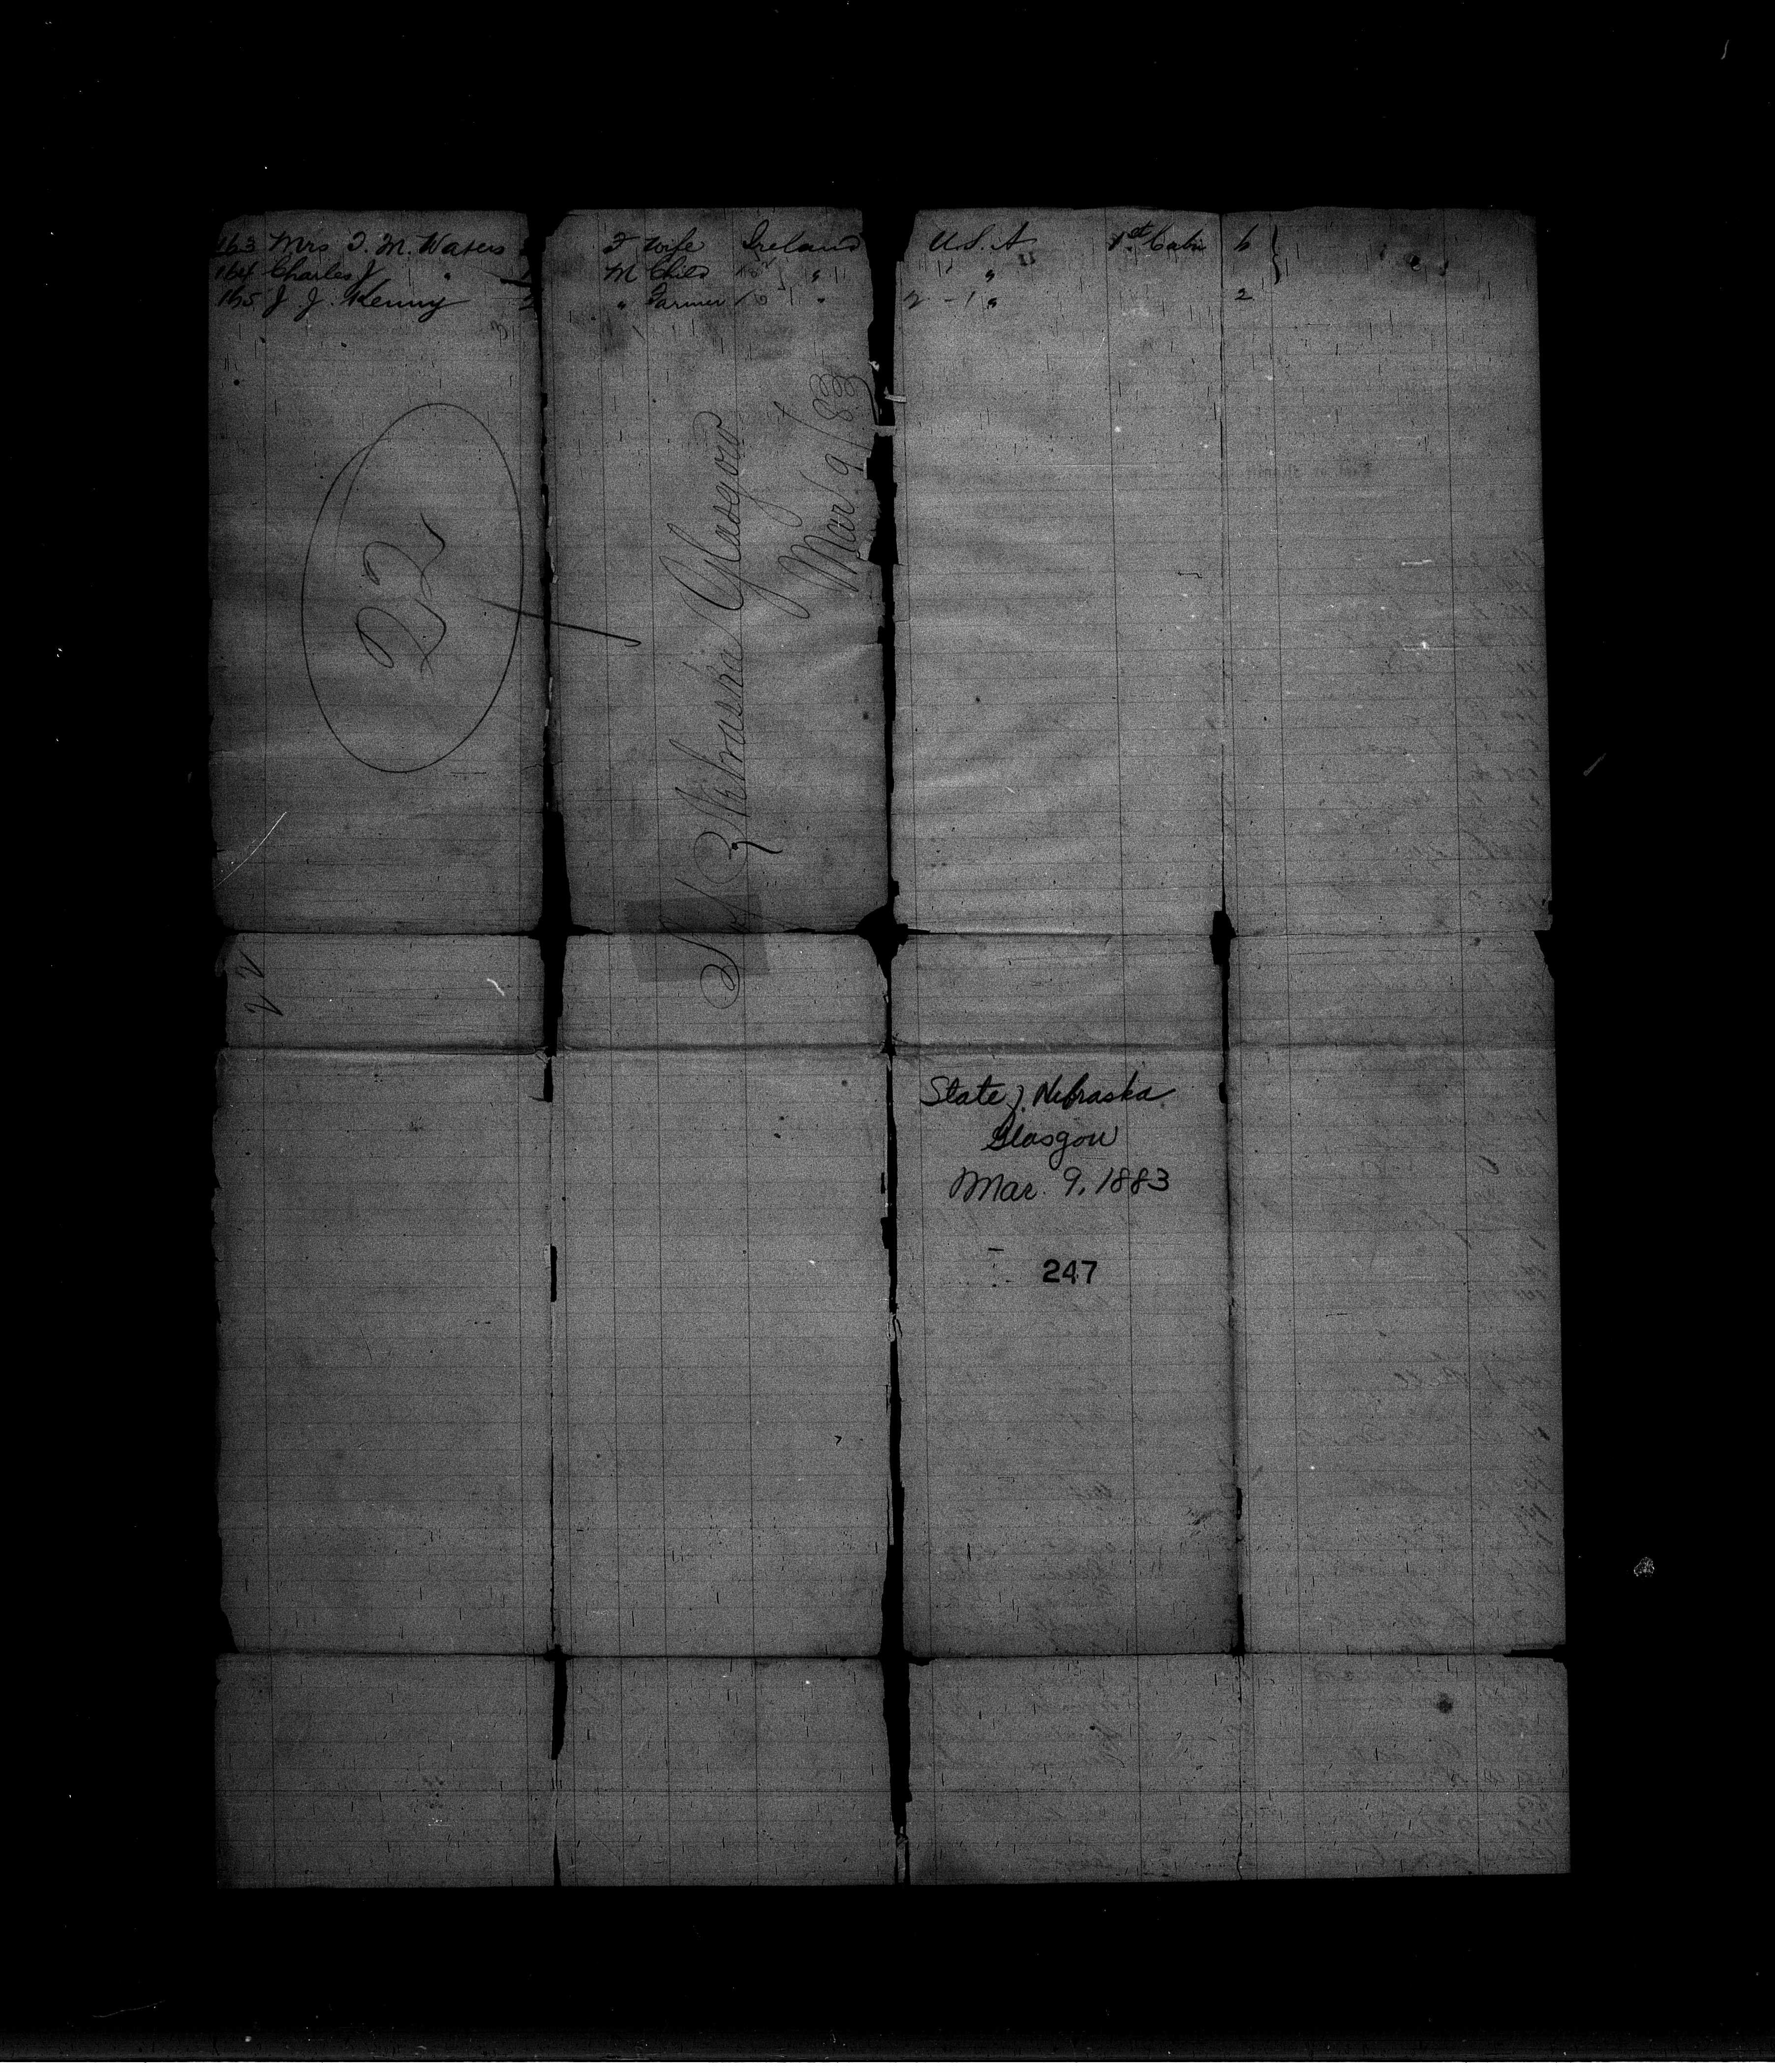 163 Mrs T. M. Waters F wife Ireland U.S.A 1st Cabin 6
164 Charles J " M Child " "
165 J. J. Kenny " Farmer " 2 - 1 " 2
22
S of Nebraska Glasgow
Mar 9/83
22
State of Nebraska
Glasgow
Mar. 9, 1883
247